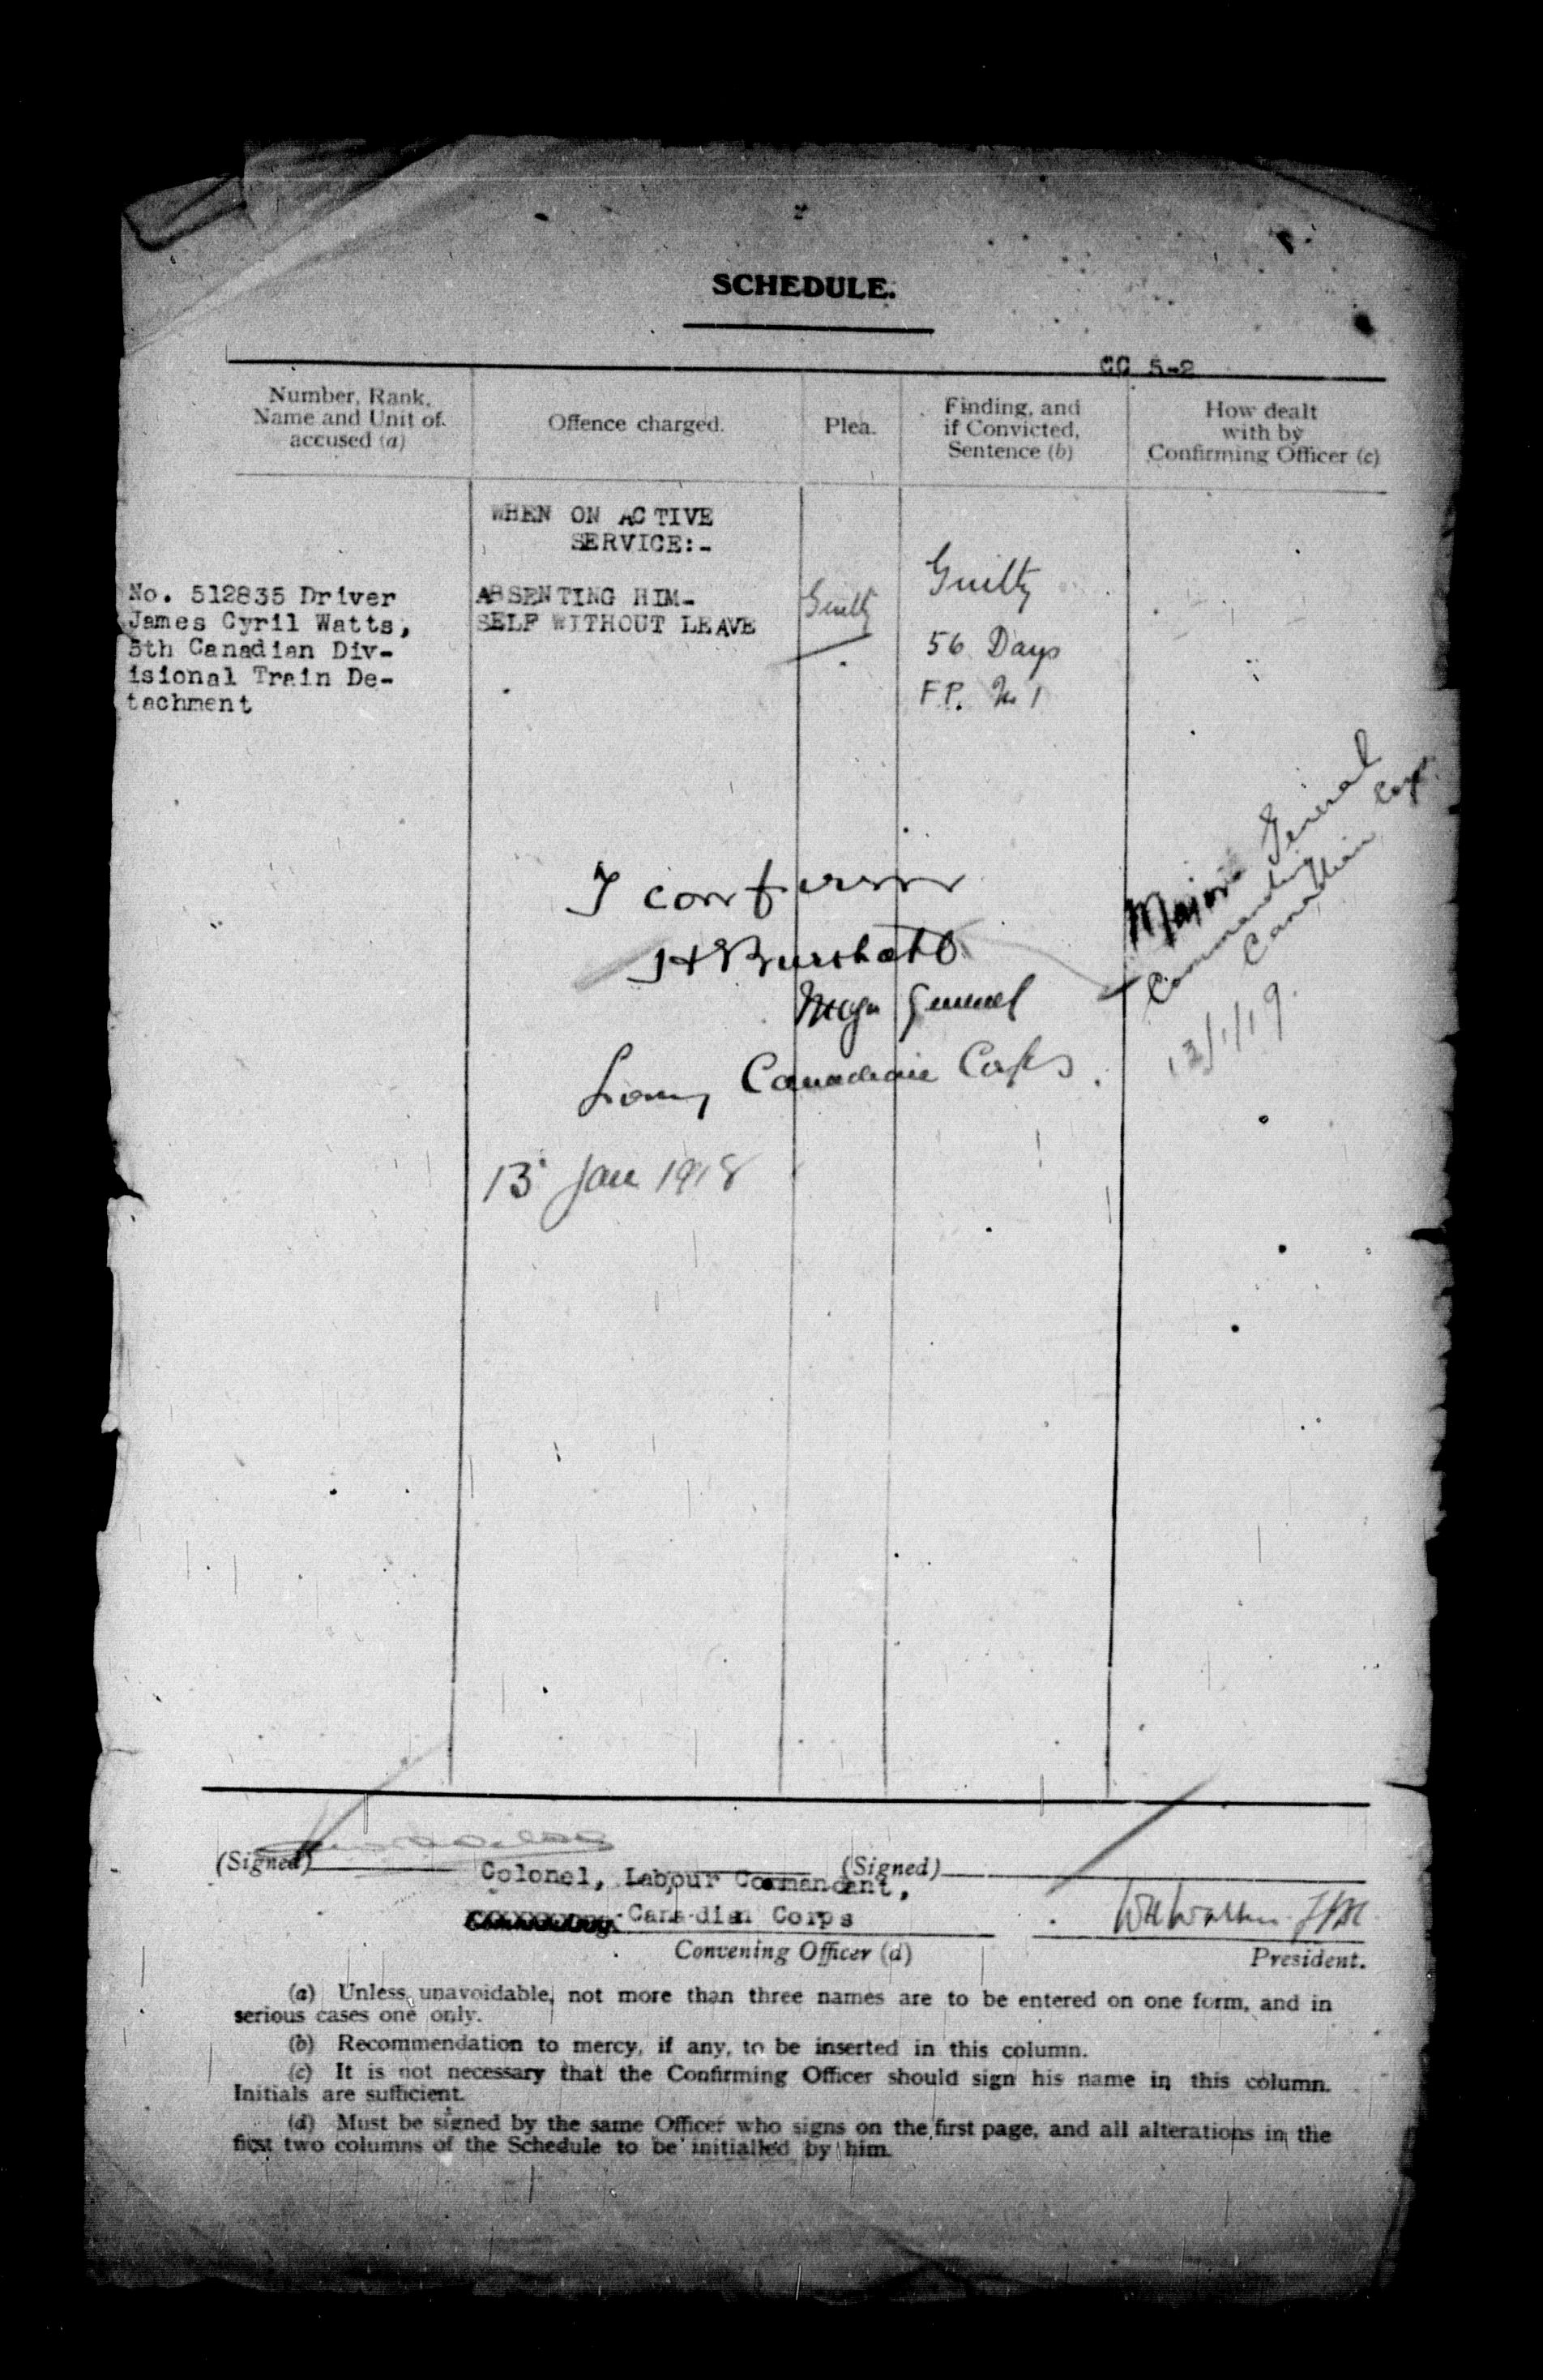 SCHEDULE.
CC 5-2
Number, Rank,
Name and Unit of
accused (a)
Offence charged.
Plea.
Finding, and
if Convicted,
Sentence (b)
How dealt
with by
Confirming Officer (c)
WHEN ON ACTIVE
SERVICE:-
No. 512835 Driver
James Cyril Watts,
5th Canadian Div-
isional Train De-
tachment
ABSENTING HIM-
SELF WITHOUT LEAVE
Guilty
Guilty
56 Days
F.P. No 1
I confirm
Major General
Canadian Corps.
13 Jan 1918
Major General
Commanding
Canadian Corps.
13/1/19.
(Signed)
Colonel, Labour Commandant,
Canadian Corps
Convening Officer (d)
(Signed)
President.
(a) Unless unavoidable, not more than three names are to be entered on one form, and in
serious cases one only.
(b) Recommendation to mercy, if any, to be inserted in this column.
(c) It is not necessary that the Confirming Officer should sign his name in this column.
Initials are sufficient.
(d) Must be signed by the same Officer who signs on the first page, and all alterations in the
first two columns of the Schedule to be initialled by him.